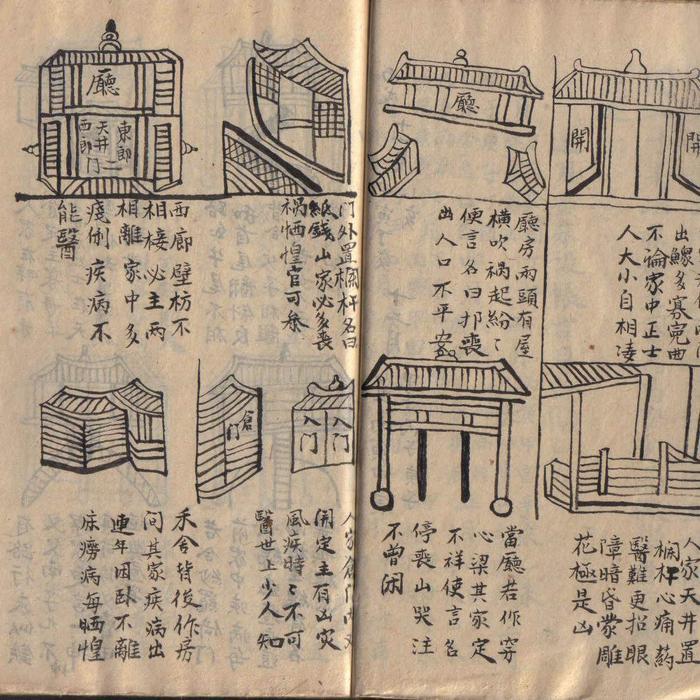 開
開
出鰥多寡寃曲
不論家中正士
人大小自相凌
廳
廳房兩頭有屋
横吹禍起紛〻
便言名曰扛喪
出人口不平安
人家天井置
欄杆心痛藥
醫難更招眼
障暗昏蒙雕
花極是凶
當廳若作穿
心梁其家定
不祥使言名
停喪山哭注
不曾闲
门外置欄杆名曰
紙錢山家必多喪
禍恓惶官可叅
廳
東郎
天井
西郎
门
西廊壁枋不
相接必主两
相離家中多
痿俐疾病不
能醫
入门
入门
倉门
開定主有凶灾
風疾時〻不可
醫世上少人知
禾舍背後作房
间其家疾病出
連年困卧不離
床癆病每恓惶